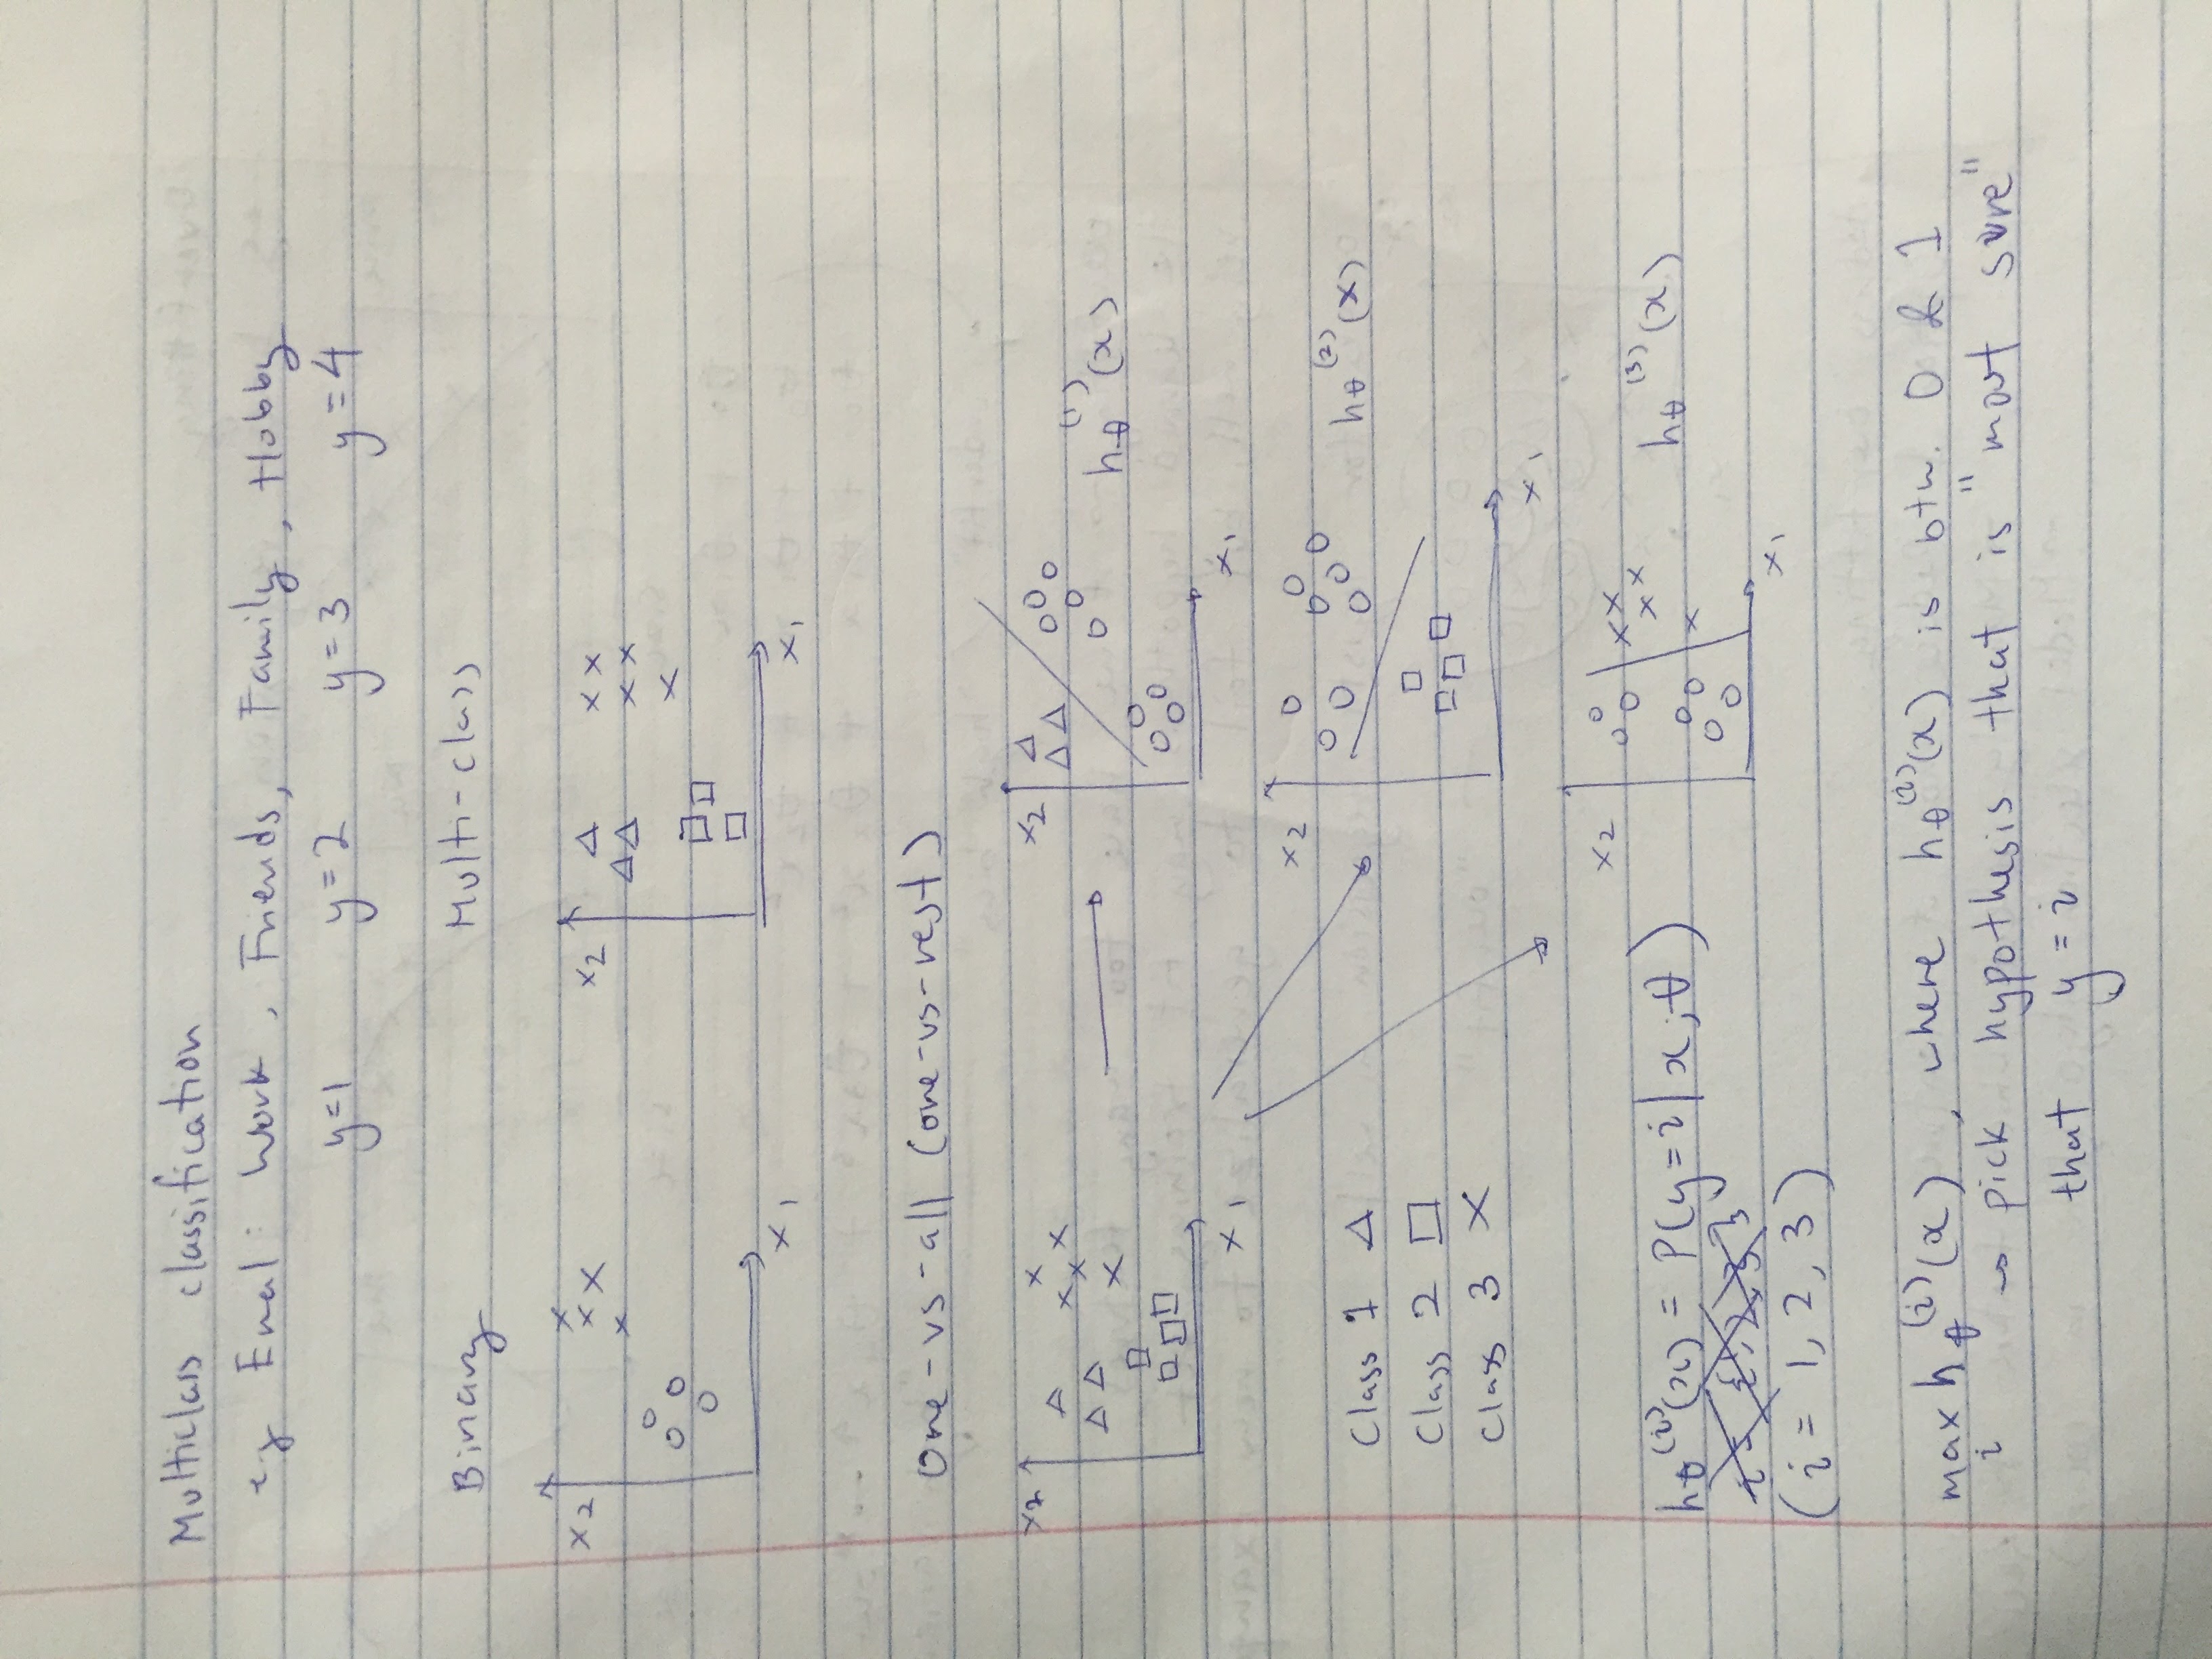 Multiclass classification
eg Email: Work, Friends, Family, Hobby
y=1 y=2 y=3 y=4
Binary Multi-class
x2 x2
x1 x1
One-vs-all (one-vs-rest)
x2 x2
hθ^(1)(x)
x1 x1
x2
Class 1 △ hθ^(2)(x)
Class 2 □
Class 3 ×
x1
x2
hθ^(i)(x) = P(y=i|x;θ) hθ^(3)(x)
x1
(i = 1, 2, 3)
max hθ^(i)(x), where hθ^(i)(x) is btw. 0 & 1
i → pick hypothesis that is "most sure"
that y = i